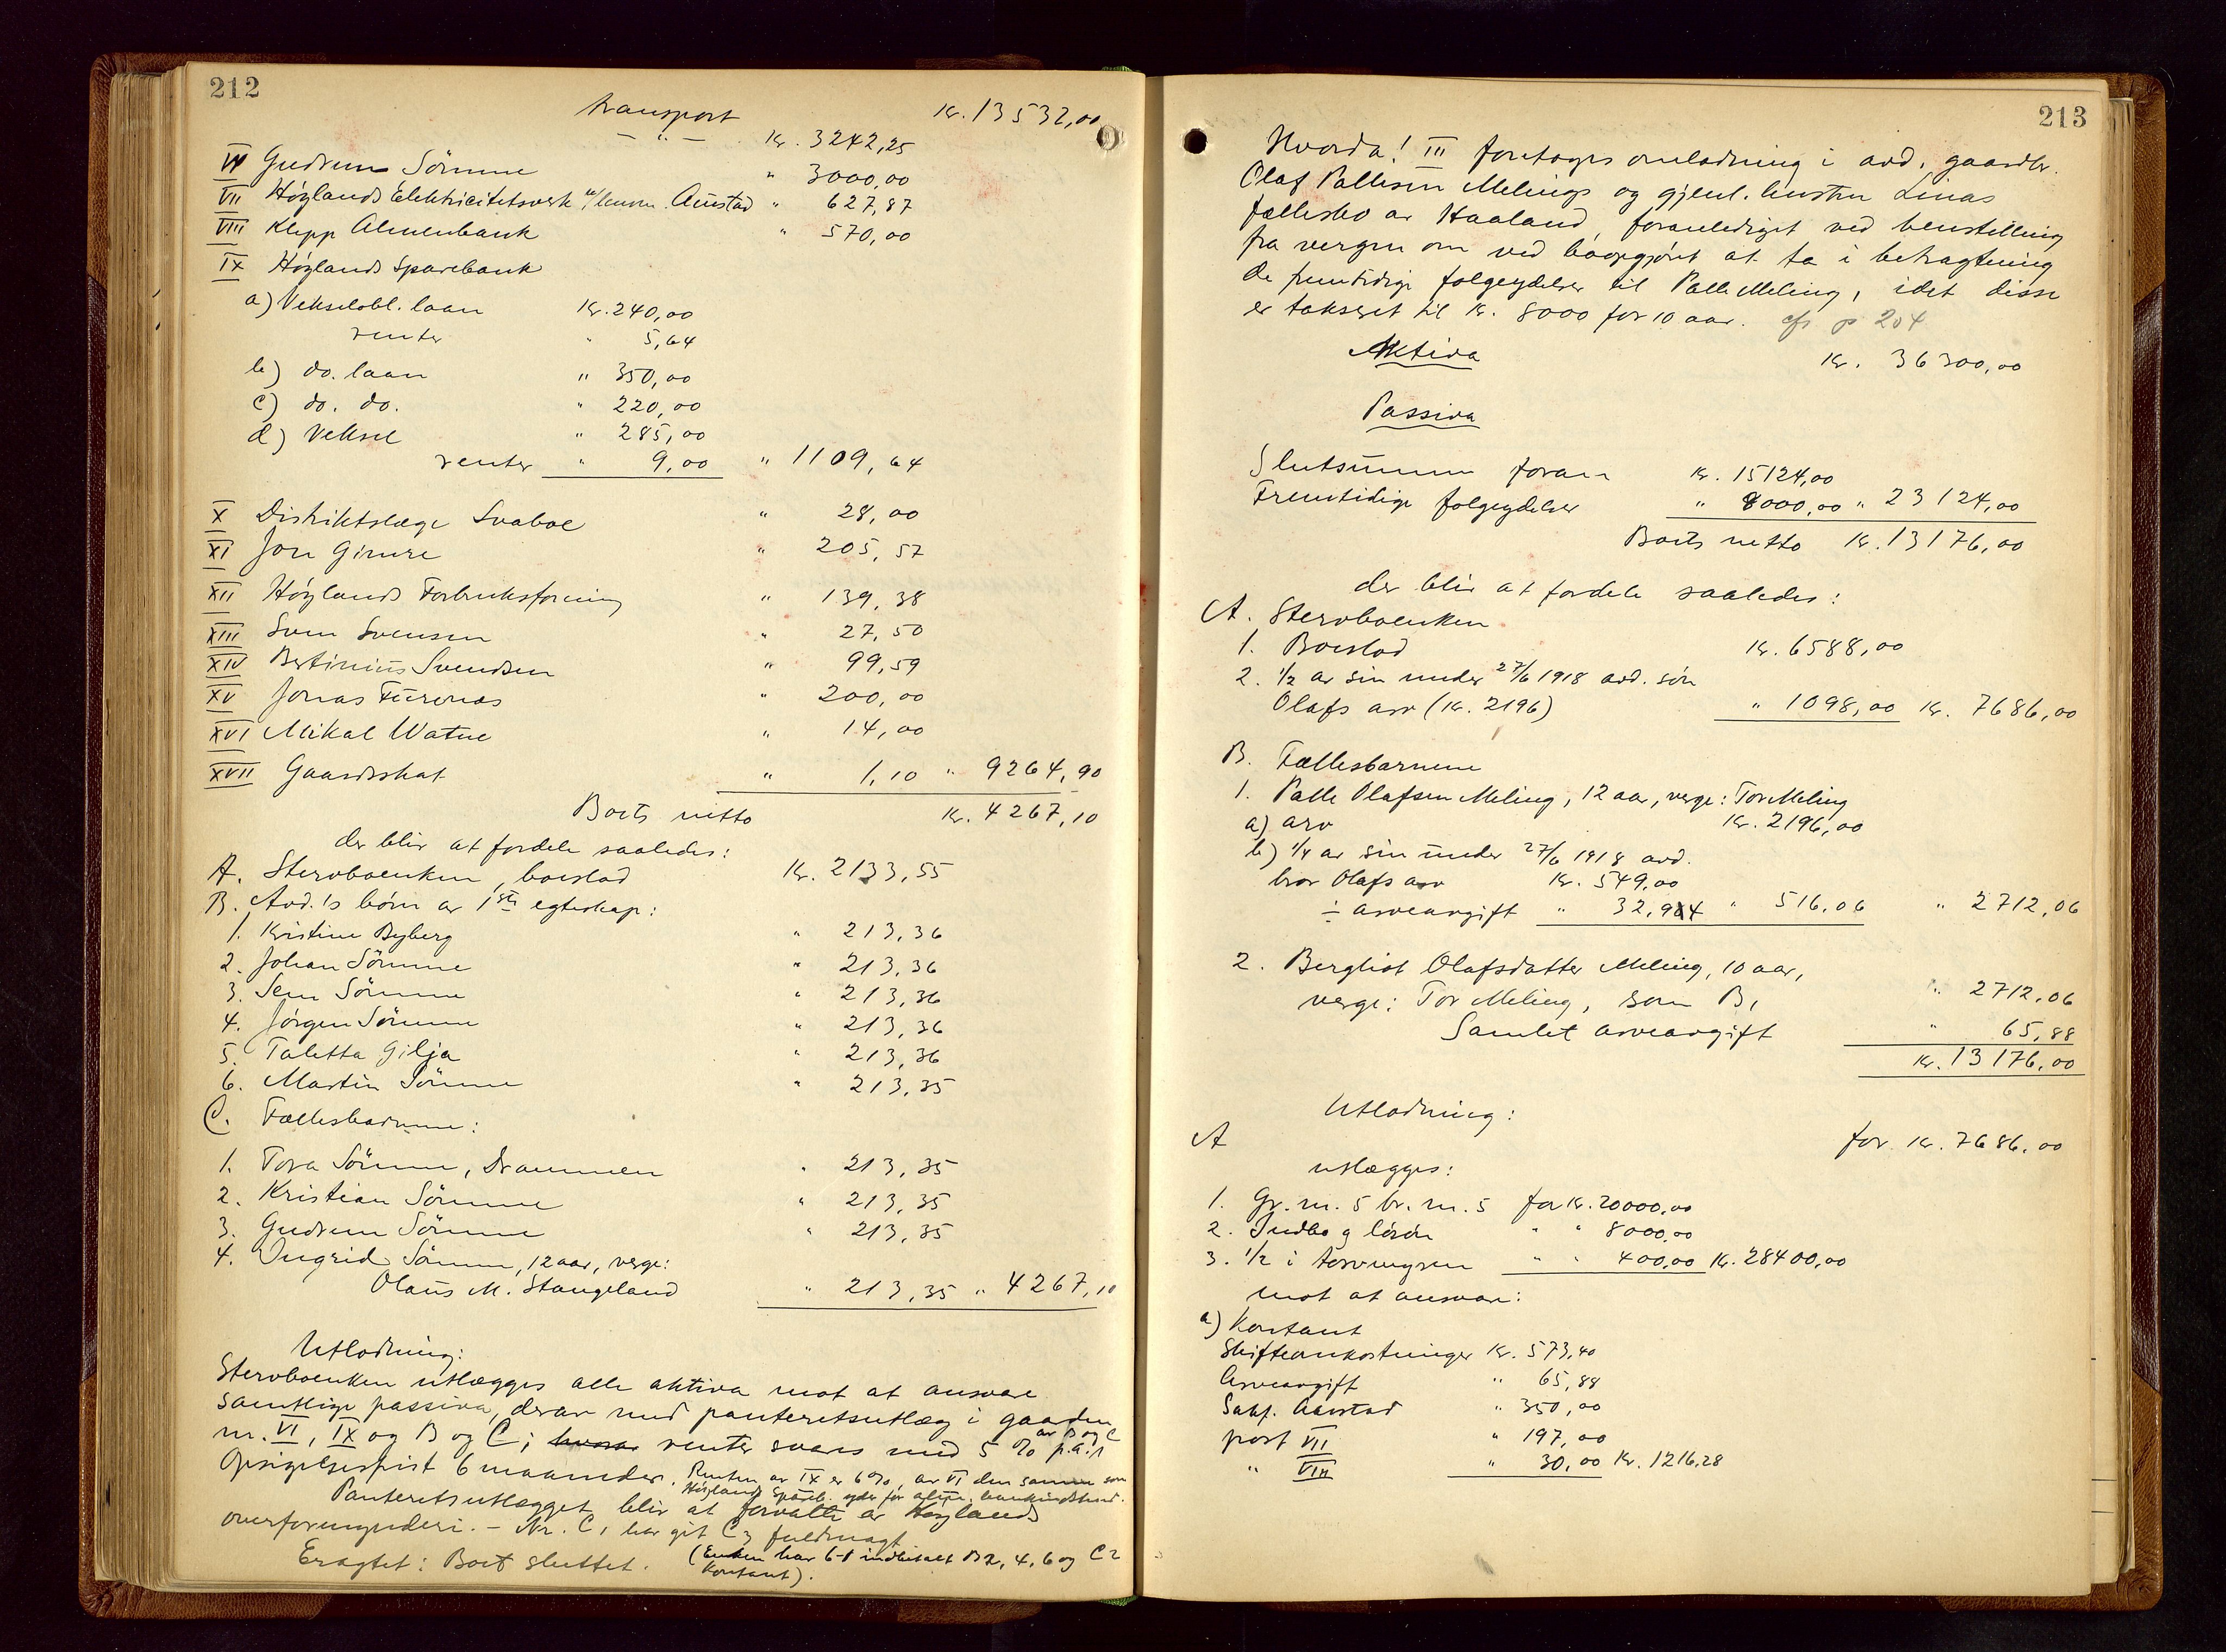 212
transport Kr. 13532,00
— " — Kr. 3242,25
VI Gudrun Sömme " 3000,00
VII Höylands Elektricitetsverk v/lensm. Aurstad " 627,87
VIII Klepp Almenbank " 570,00
IX Höylands Sparebank
a) Vekselobl. laan Kr. 240,00
renter " 5,64
b) do. laan " 350,00
c) do. do. " 220,00
d) Veksel " 285,00
renter " 9,00 " 1109,64
X Distriktslæge Svaboe " 28,00
XI Jon Gimre " 205,57
XII Höylands Forbruksforening " 139,38
XIII Sven Svensen " 27,50
XIV Bertinius Svendsen " 99,59
XV Jonas Furenes " 200,00
XVI Mikal Watne " 14,00
XVII Gaardsskat " 1,10 " 9264,90
Boets netto Kr. 4267,10
der blir at fordele saaledes:
A. Stervboenken, boeslod Kr. 2133,55
B. Avd.'s börn av 1ste egteskap:
1. Kristine Byberg " 213,36
2. Johan Sömme " 213,36
3. Sem Sömme " 213,36
4. Jörgen Sömme " 213,36
5. Taletta Gilja " 213,36
6. Martin Sömme " 213,35
C. Fællesbarnene:
1. Tora Sömme, Drammen " 213,35
2. Kristian Sömme " 213,35
3. Gudrun Sömme " 213,35
4. Ingrid Sömme, 12 aar, verge:
Olaus M. Stangeland " 213,35 " 4267,10
Utlodning:
Stervboenken utlægges alle aktiva mot at ansvare
samtlige passiva, derav med panteretsutlæg i gaarden
nr. VI, IX og B og C; hvorav renter svares med 5 % p.a. av B og C
Opsigelsesfrist 6 maaneder. Renten av IX er 6%, av VI den samme som
Höylands Spareb. yder for alm. bankindskud.
Panteretsutlægget blir at forvalte av Höylands
overformynderi. – Nr. C1 har git C3 fuldmagt
Eragtet: Boet sluttet. (Enken har 6-1 indbetalt B2, 4, 6 og C2
kontant).
213
Hvorda! III foretoges omlodning i avd. gaardbr.
Olaf Pallesen Melings og gjenl. hustru Linas
fællesbo av Haaland, foranlediget ved henstilling
fra vergen om ved boopgjöret at ta i betragtning
de fremtidige folgeydelser til Palle Meling, idet disse
er takseret til Kr. 8000 for 10 aar. cfr p 204
Aktiva Kr. 36300,00
Passiva
Slutsummen foran Kr. 15124,00
Fremtidige folgeydelser " 8000,00 " 23124,00
Boets netto Kr. 13176,00
der blir at fordele saaledes:
A. Stervboenken
1. Boeslod Kr. 6588,00
2. 1/2 av sin under 27/6 1918 avd. sön
Olafs arv (Kr. 2196) " 1098,00 Kr. 7686,00
B. Fællesbarnene
1. Palle Olafsen Meling, 12 aar, verge: Tor Meling
a) arv Kr. 2196,00
b) 1/4 av sin under 27/6 1918 avd.
bror Olafs arv Kr. 549,00
÷ arveavgift " 32,94 " 516,06 " 2712,06
2. Bergliot Olafsdatter Meling, 10 aar,
verge: Tor Meling, som B1 " 2712,06
Samlet arveavgift " 65,88
Kr. 13176,00
Utlodning:
A for Kr. 7686,00
utlægges:
1. Gr. nr. 5 br. nr. 5 for Kr. 20000,00
2. Indbo og lösöre " " 8000,00
3. 1/2 i torvmyren " " 400,00 Kr. 28400,00
mot at ansvare:
a) Kontant
Skifteomkostninger Kr. 573,40
Arveavgift " 65,88
Sakf. Aarstad " 350,00
post VII " 197,00
" VIII " 30,00 Kr. 1216,28